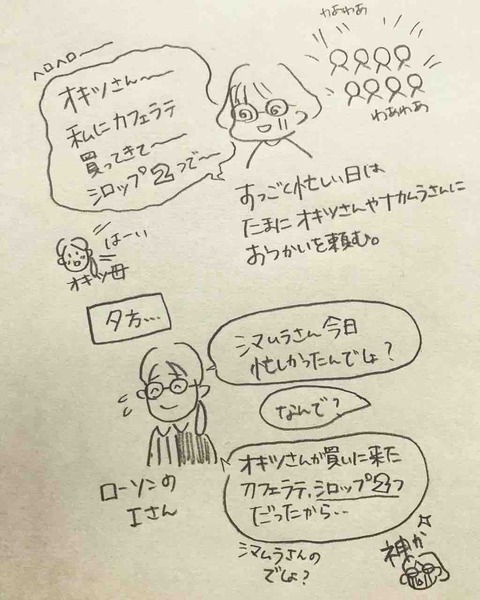 わあわあ
ヘロヘロ〜
オキツさん〜
私にカフェラテ
買ってきて〜
シロップ2つで〜
わあわあ
すっごく忙しい日は
たまにオキツさんやナカムラさんに
おつかいを頼む。
はーい
オキツ母
夕方…
シマムラさん今日
忙しかったんでしょ?
なんで?
オキツさんが買いに来た
カフェラテ、シロップ2つ
だったから…
ローソンの
Iさん
シマムラさんの
でしょ?
神か